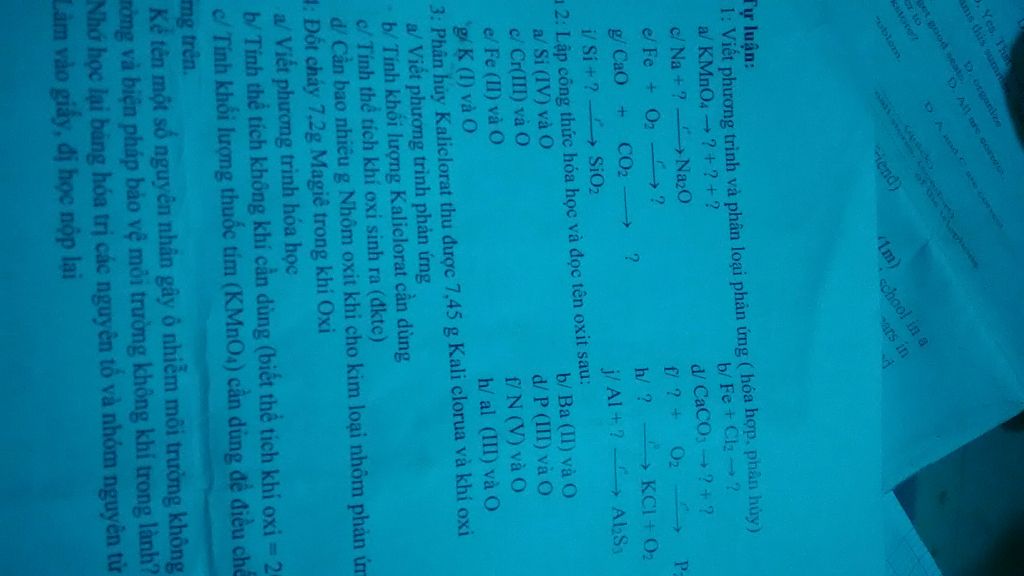 Tự luận:
1: Viết phương trình và phân loại phản ứng ( hóa hợp, phân hủy)
a/ KMnO₄ → ? + ? + ?
b/ Fe + Cl₂ → ?
c/ Na + ? —t°→ Na₂O
d/ CaCO₃ → ? + ?
e/ Fe + O₂ —t°→ ?
f/ ? + O₂ —t°→ P₂
g/ CaO + CO₂ → ?
h/ ? —t°→ KCl + O₂
i/ Si + ? —t°→ SiO₂
j/ Al + ? —t°→ Al₂S₃
2: Lập công thức hóa học và đọc tên oxit sau:
a/ Si (IV) và O
b/ Ba (II) và O
c/ Cr(III) và O
d/ P (III) và O
e/ Fe (II) và O
f/ N (V) và O
g/ K (I) và O
h/ al (III) và O
3: Phân hủy Kaliclorat thu được 7,45 g Kali clorua và khí oxi
a/ Viết phương trình phản ứng
b/ Tính khối lượng Kaliclorat cần dùng
c/ Tính thể tích khí oxi sinh ra (đktc)
d/ Cần bao nhiêu g Nhôm oxit khi cho kim loại nhôm phản ứn
4: Đốt cháy 7,2g Magiê trong khí Oxi
a/ Viết phương trình hóa học
b/ Tính thể tích không khí cần dùng (biết thể tích khí oxi = 2
c/ Tính khối lượng thuốc tím (KMnO₄) cần dùng để điều chế
ứng trên.
Kể tên một số nguyên nhân gây ô nhiễm môi trường không
ường và biện pháp bảo vệ môi trường không khí trong lành?
Nhớ học lại bảng hóa trị các nguyên tố và nhóm nguyên tử
Làm vào giấy, đi học nộp lại
D. organize
D. All are correct.
(1m)
school in a